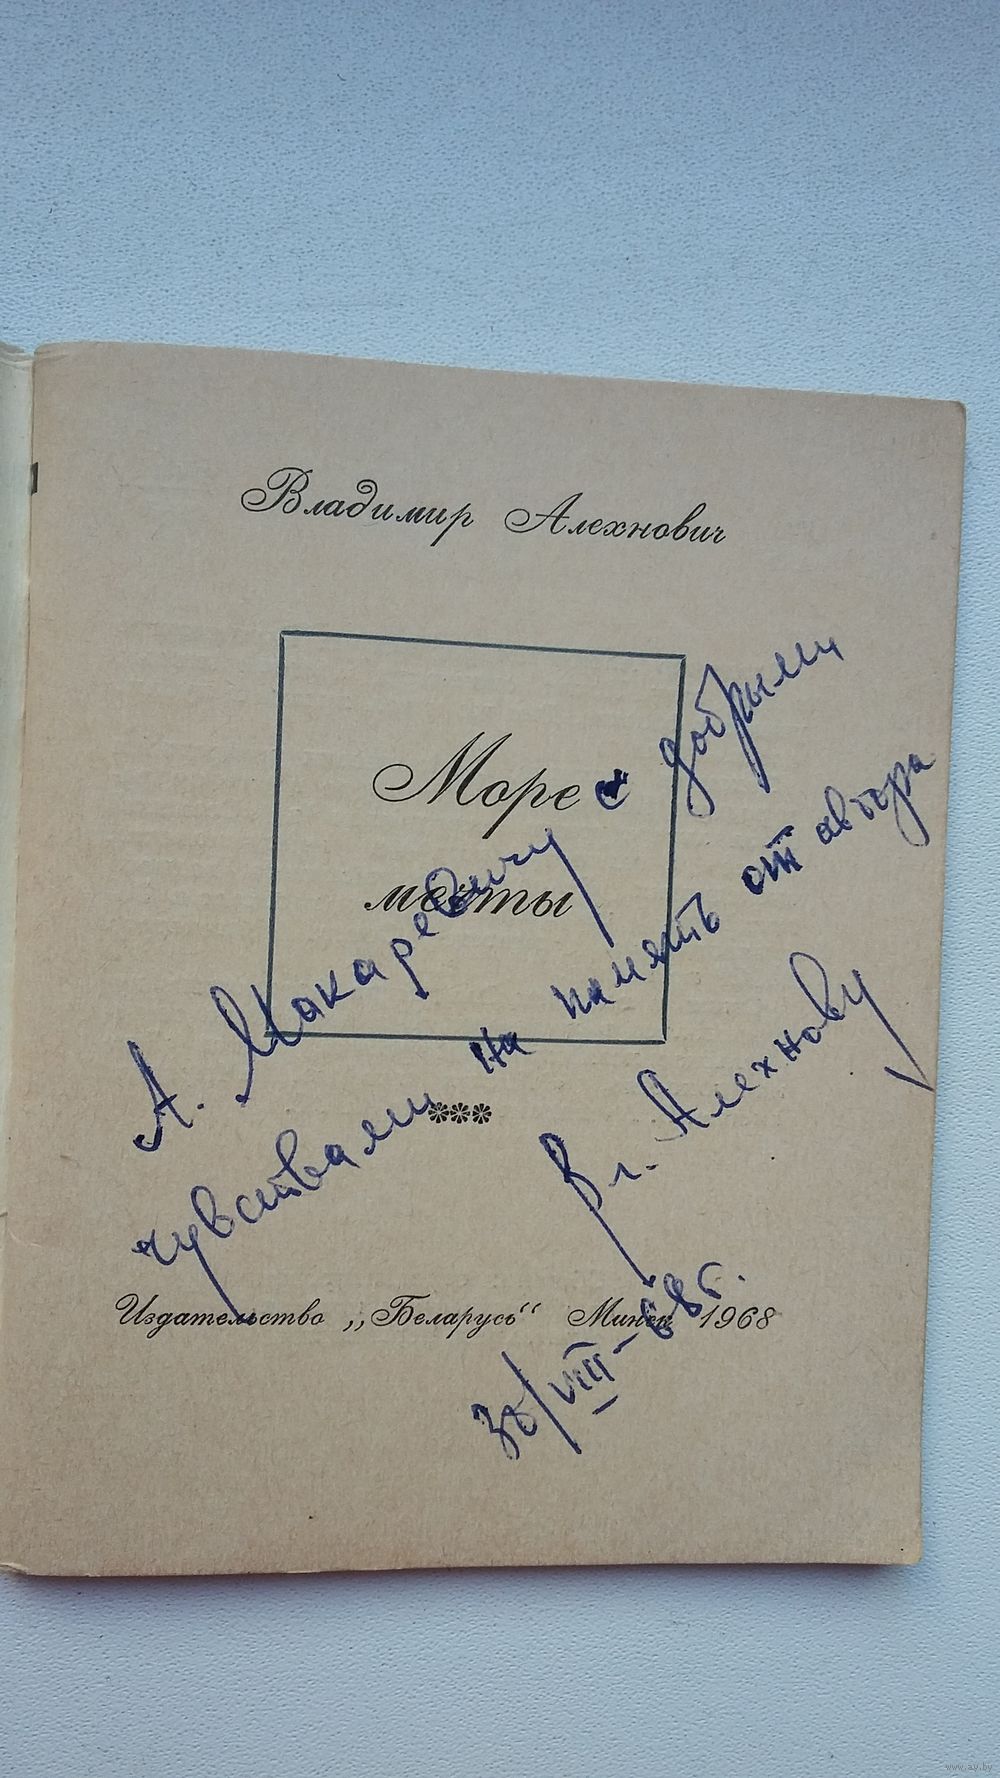 Владимир Алехнович
Море
мечты
А. Макаревичу с добрыми
чувствами на память от автора
Вл. Алехнович
30/VIII-68 г.
Издательство „Беларусь“ Минск 1968
www.ay.by